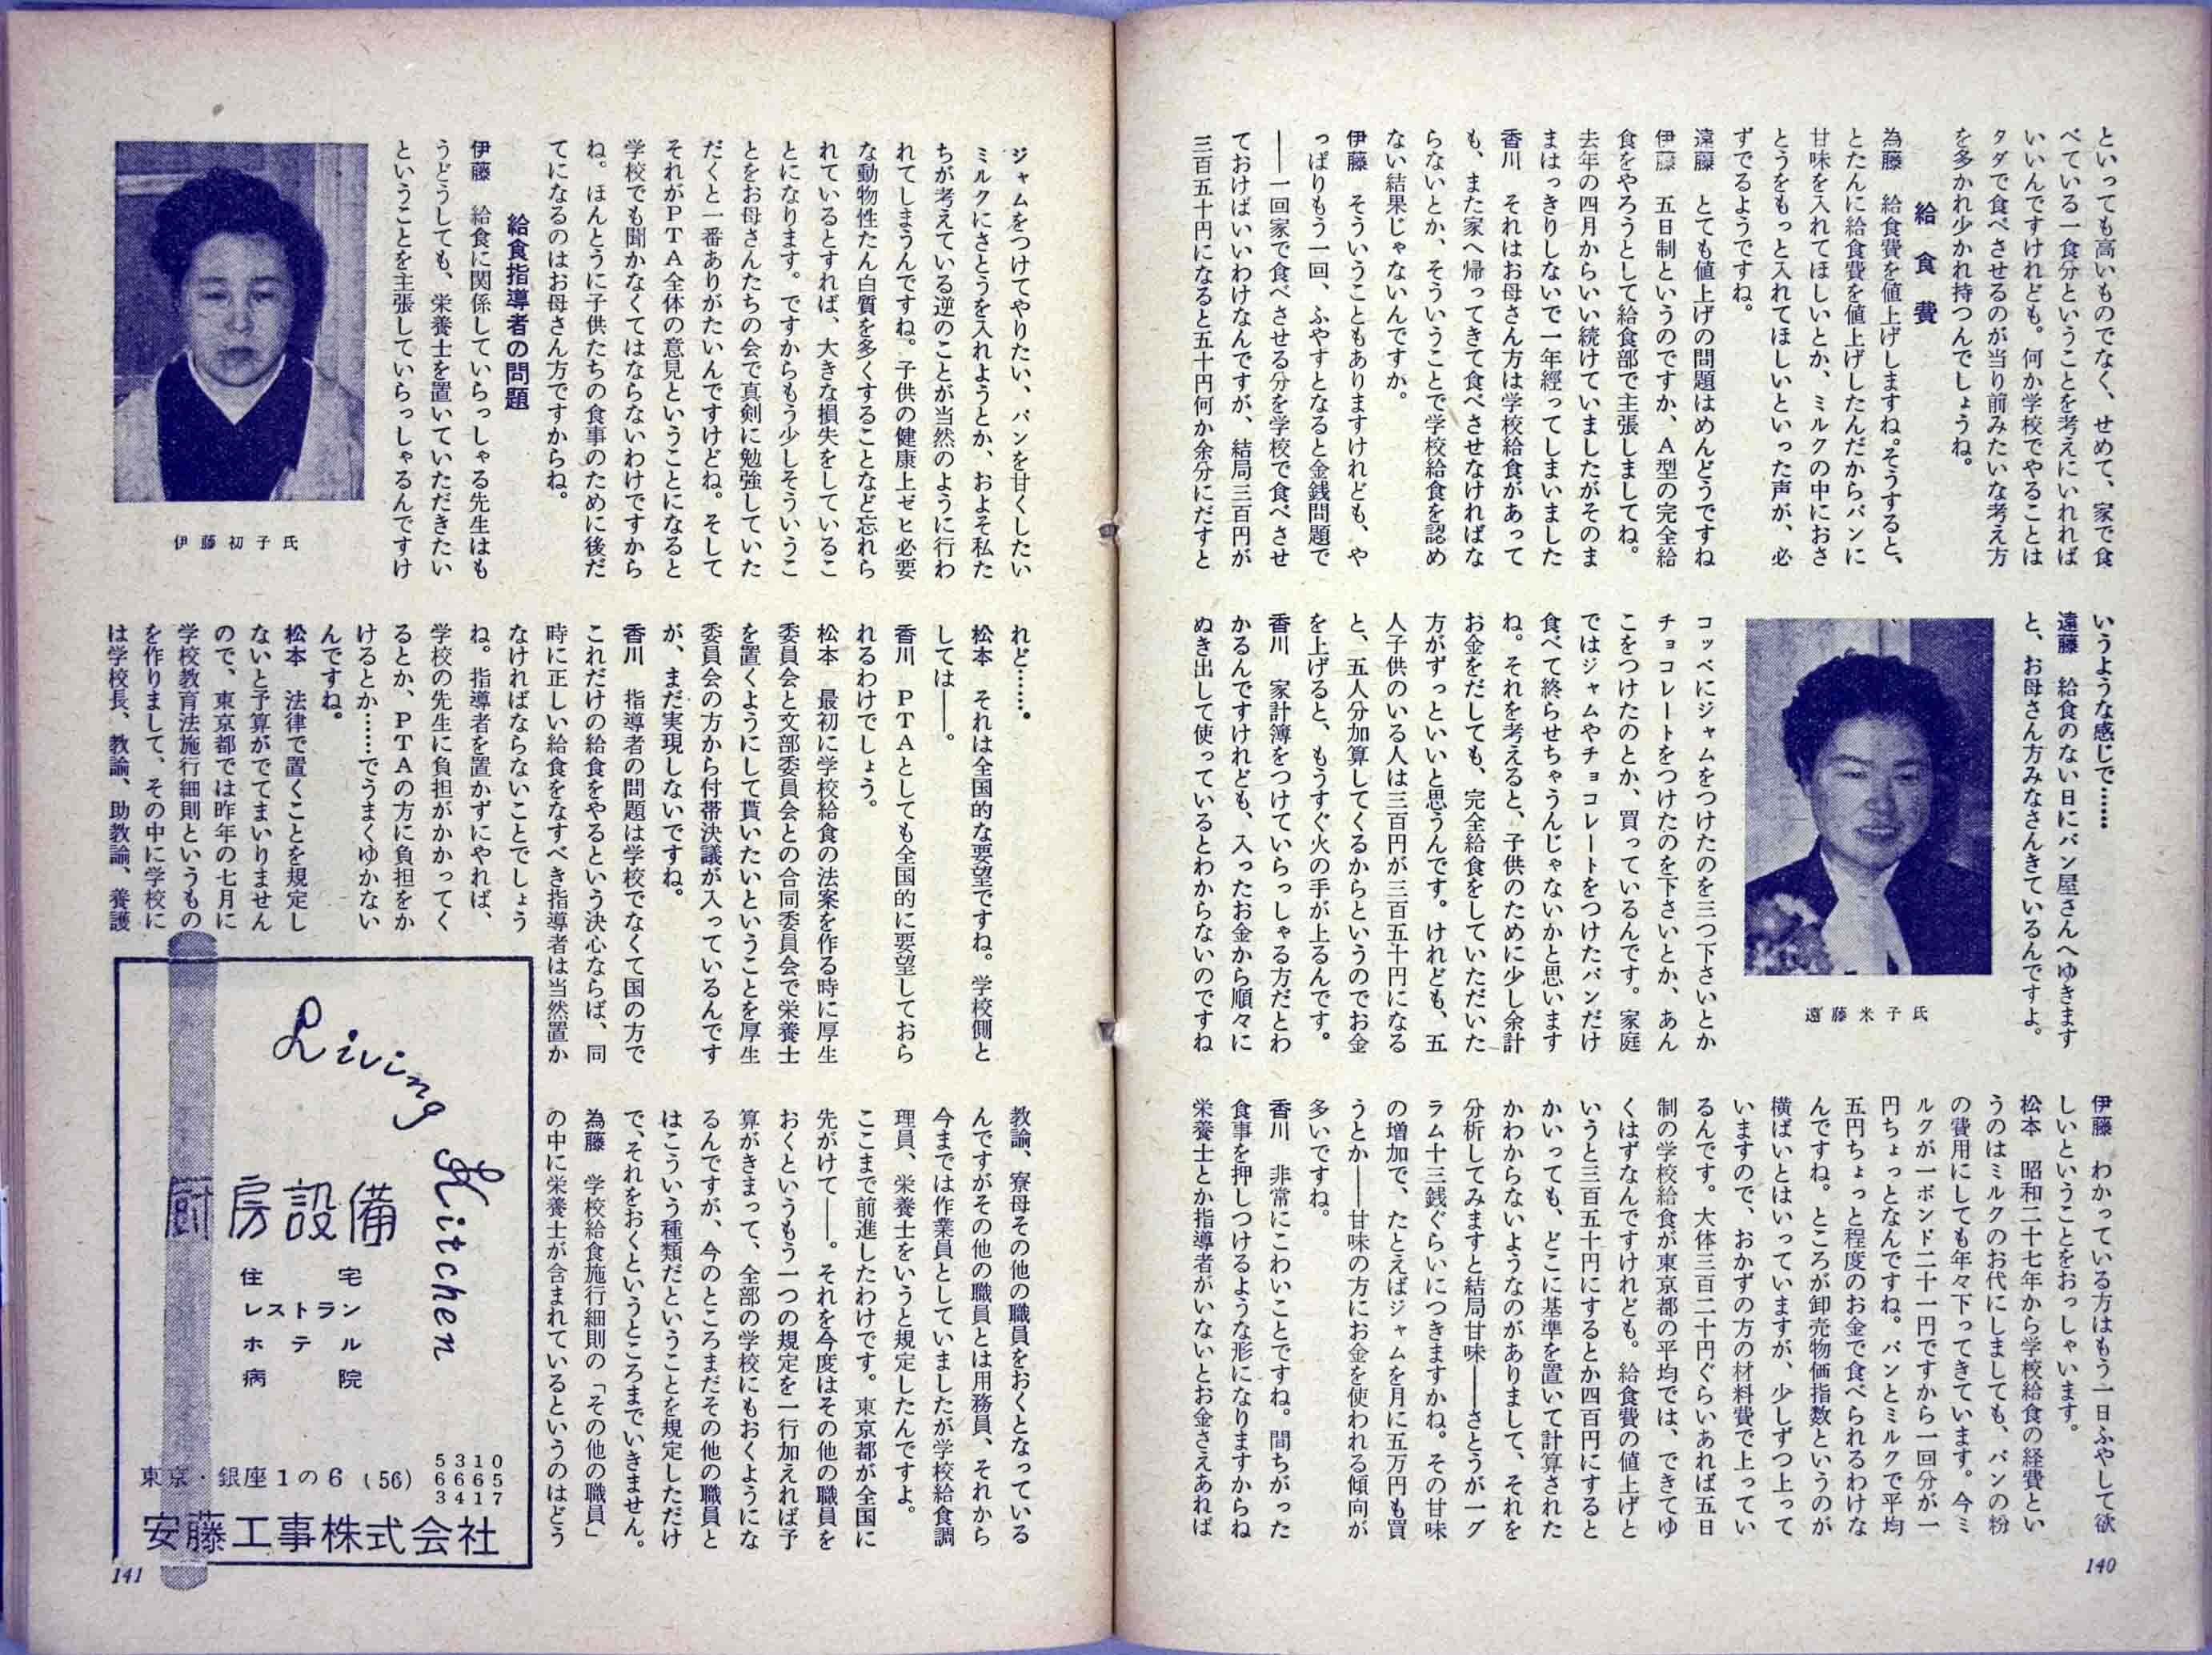 といっても高いものでなく、せめて、家で食
べている一食分ということを考えにいれれば
いいんですけれども。何か学校でやることは
タダで食べさせるのが当り前みたいな考え方
を多かれ少かれ持つんでしょうね。
給食費
為藤　給食費を値上げしますね。そうすると、
とたんに給食費を値上げしたんだからパンに
甘味を入れてほしいとか、ミルクの中におさ
とうをもっと入れてほしいといった声が、必
ずでるようですね。
遠藤　とても値上げの問題はめんどうですね
伊藤　五日制というのですか、Ａ型の完全給
食をやろうとして給食部で主張しましてね。
去年の四月からいい続けていましたがそのま
まはっきりしないで一年經ってしまいました
香川　それはお母さん方は学校給食があって
も、また家へ帰ってきて食べさせなければな
らないとか、そういうことで学校給食を認め
ない結果じゃないんですか。
伊藤　そういうこともありますけれども、や
っぱりもう一回、ふやすとなると金銭問題で
――一回家で食べさせる分を学校で食べさせ
ておけばいいわけなんですが、結局三百円が
三百五十円になると五十円何か余分にだすと
いうような感じで……
遠藤　給食のない日にパン屋さんへゆきます
と、お母さん方みなさんきているんですよ。
遠藤米子氏
コッペにジャムをつけたのを三つ下さいとか
チョコレートをつけたのを下さいとか、あん
こをつけたのとか、買っているんです。家庭
ではジャムやチョコレートをつけたパンだけ
食べて終らせちゃうんじゃないかと思います
ね。それを考えると、子供のために少し余計
お金をだしても、完全給食をしていただいた
方がずっといいと思うんです。けれども、五
人子供のいる人は三百円が三百五十円になる
と、五人分加算してくるからというのでお金
を上げると、もうすぐ火の手が上るんです。
香川　家計簿をつけていらっしゃる方だとわ
かるんですけれども、入ったお金から順々に
ぬき出して使っているとわからないのですね
伊藤　わかっている方はもう一日ふやして欲
しいということをおっしゃいます。
松本　昭和二十七年から学校給食の経費とい
うのはミルクのお代にしましても、パンの粉
の費用にしても年々下ってきています。今ミ
ルクが一ポンド二十一円ですから一回分が一
円ちょっとなんですね。パンとミルクで平均
五円ちょっと程度のお金で食べられるわけな
んですね。ところが卸売物価指数というのが
横ばいとはいっていますが、少しずつ上って
いますので、おかずの方の材料費で上ってい
るんです。大体三百二十円ぐらいあれば五日
制の学校給食が東京都の平均では、できてゆ
くはずなんですけれども。給食費の値上げと
いうと三百五十円にするとか四百円にすると
かいっても、どこに基準を置いて計算された
かわからないようなのがありまして、それを
分析してみますと結局甘味――さとうが一グ
ラム十三銭ぐらいにつきますかね。その甘味
の増加で、たとえばジャムを月に五万円も買
うとか――甘味の方にお金を使われる傾向が
多いですね。
香川　非常にこわいことですね。間ちがった
食事を押しつけるような形になりますからね
栄養士とか指導者がいないとお金さえあれば
140
ジャムをつけてやりたい、パンを甘くしたい
ミルクにさとうを入れようとか、およそ私た
ちが考えている逆のことが当然のように行わ
れてしまうんですね。子供の健康上ゼヒ必要
な動物性たん白質を多くすることなど忘れら
れているとすれば、大きな損失をしているこ
とになります。ですからもう少しそういうこ
とをお母さんたちの会で真剣に勉強していた
だくと一番ありがたいんですけどね。そして
それがＰＴＡ全体の意見ということになると
学校でも聞かなくてはならないわけですから
ね。ほんとうに子供たちの食事のために後だ
てになるのはお母さん方ですからね。
給食指導者の問題
伊藤　給食に関係していらっしゃる先生はも
うどうしても、栄養士を置いていただきたい
ということを主張していらっしゃるんですけ
伊藤初子氏
れど……。
松本　それは全国的な要望ですね。学校側と
しては――。
香川　ＰＴＡとしても全国的に要望しておら
れるわけでしょう。
松本　最初に学校給食の法案を作る時に厚生
委員会と文部委員会との合同委員会で栄養士
を置くようにして貰いたいということを厚生
委員会の方から付帯決議が入っているんです
が、まだ実現しないですね。
香川　指導者の問題は学校でなくて国の方で
これだけの給食をやるという決心ならば、同
時に正しい給食をなすべき指導者は当然置か
なければならないことでしょう
ね。指導者を置かずにやれば、
学校の先生に負担がかかってく
るとか、ＰＴＡの方に負担をか
けるとか……でうまくゆかない
んですね。
松本　法律で置くことを規定し
ないと予算がでてまいりません
ので、東京都では昨年の七月に
学校教育法施行細則というもの
を作りまして、その中に学校に
は学校長、教諭、助教諭、養護
教諭、寮母その他の職員をおくとなっている
んですがその他の職員とは用務員、それから
今までは作業員としていましたが学校給食調
理員、栄養士をいうと規定したんですよ。
ここまで前進したわけです。東京都が全国に
先がけて――。それを今度はその他の職員を
おくというもう一つの規定を一行加えれば予
算がきまって、全部の学校にもおくようにな
るんですが、今のところまだその他の職員と
はこういう種類だということを規定しただけ
で、それをおくというところまでいきません。
為藤　学校給食施行細則の「その他の職員」
の中に栄養士が含まれているというのはどう
Living Kitchen
厨房設備
住宅
レストラン
ホテル
病院
東京・銀座1の6 (56)
5310
6665
3417
安藤工事株式会社
141